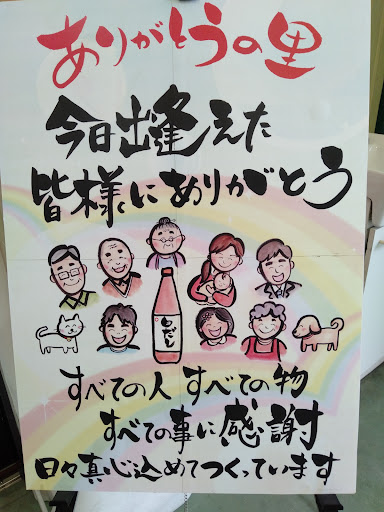 ありがとうの里
今日出逢えた
皆様にありがとう
すべての人 すべての物
すべての事に感謝
日々真心込めてつくっています